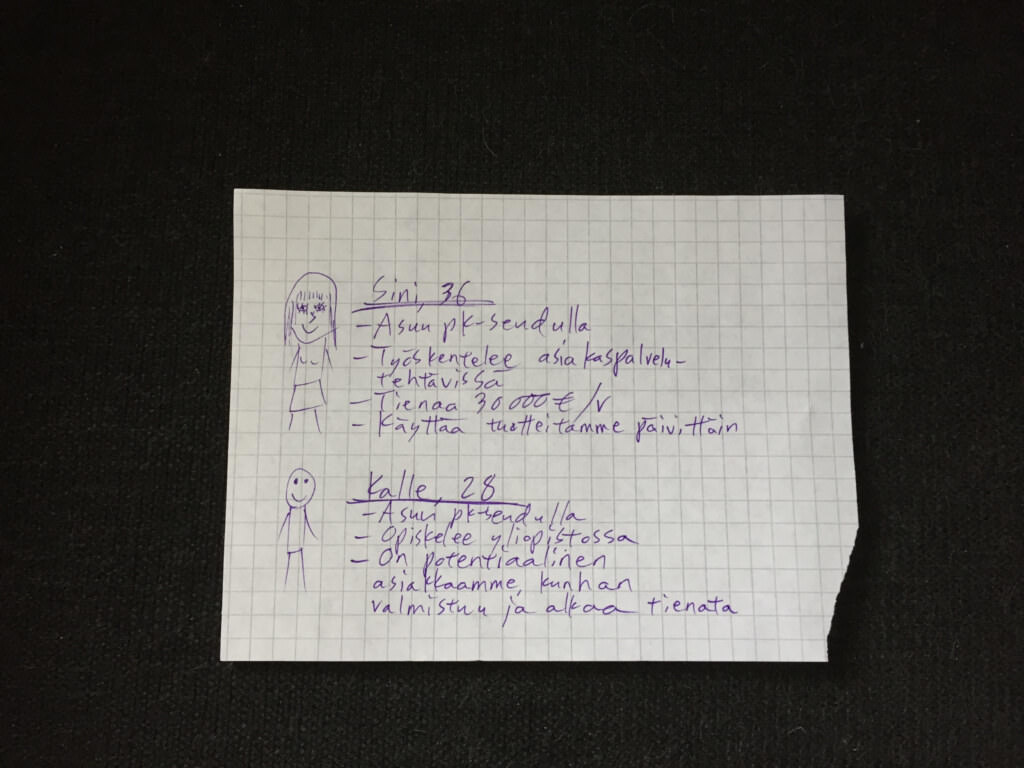 Sini, 36
- Asuu pk-seudulla
- Työskentelee asiakaspalvelu-
tehtävissä
- Tienaa 30 000 € /v
- Käyttää tuotteitamme päivittäin
Kalle, 28
- Asuu pk-seudulla
- Opiskelee yliopistossa
- On potentiaalinen
asiakkaamme, kunhan
valmistuu ja alkaa tienata